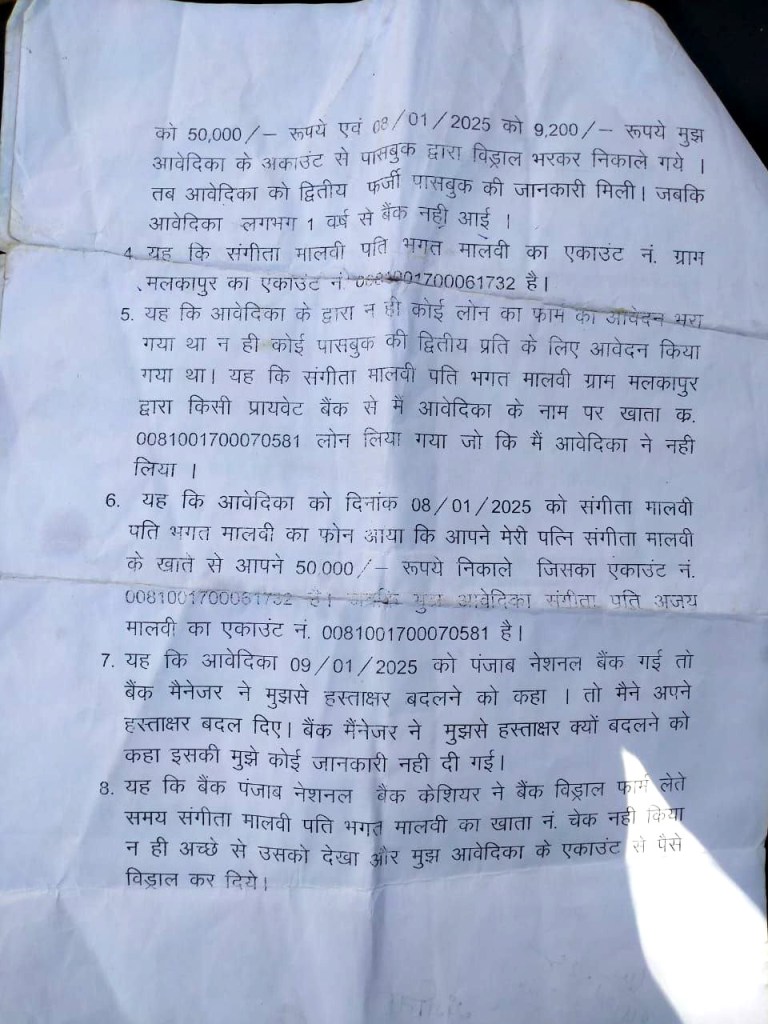 को 50,000/– रूपये एवं 08/01/2025 को 9,200/– रूपये मुझ
आवेदिका के अकाउंट से पासबुक द्वारा विड्राल भरकर निकाले गये ।
तब आवेदिका को द्वितीय फर्जी पासबुक की जानकारी मिली। जबकि
आवेदिका लगभग 1 वर्ष से बैंक नही आई ।
4. यह कि संगीता मालवी पति भगत मालवी का एकाउंट नं. ग्राम
मलकापुर का एकाउंट नं. 0081001700061732 है।
5. यह कि आवेदिका के द्वारा न ही कोई लोन का फाम का आवेदन भरा
गया था न ही कोई पासबुक की द्वितीय प्रति के लिए आवेदन किया
गया था। यह कि संगीता मालवी पति भगत मालवी ग्राम मलकापुर
द्वारा किसी प्रायवेट बैंक से मैं आवेदिका के नाम पर खाता क.
0081001700070581 लोन लिया गया जो कि मैं आवेदिका ने नही
लिया ।
6. यह कि आवेदिका को दिनांक 08/01/2025 को संगीता मालवी
पति भगत मालवी का फोन आया कि आपने मेरी पत्नि संगीता मालवी
के खाते से आपने 50,000/– रूपये निकाले जिसका एकाउंट नं.
0081001700061732 है। जबकि मुझ आवेदिका संगीता पति अजय
मालवी का एकाउंट नं. 0081001700070581 है।
7. यह कि आवेदिका 09/01/2025 को पंजाब नेशनल बैंक गई तो
बैंक मैनेजर ने मुझसे हस्ताक्षर बदलने को कहा । तो मैने अपने
हस्ताक्षर बदल दिए। बैंक मैंनेजर ने मुझसे हस्ताक्षर क्यों बदलने को
कहा इसकी मुझे कोई जानकारी नही दी गई।
8. यह कि बैंक पंजाब नेशनल बैक केशियर ने बैंक विड्राल फार्म लेते
समय संगीता मालवी पति भगत मालवी का खाता नं. चेक नही किया
न ही अच्छे से उसको देखा और मुझ आवेदिका के एकाउंट से पैसे
विड्राल कर दिये।